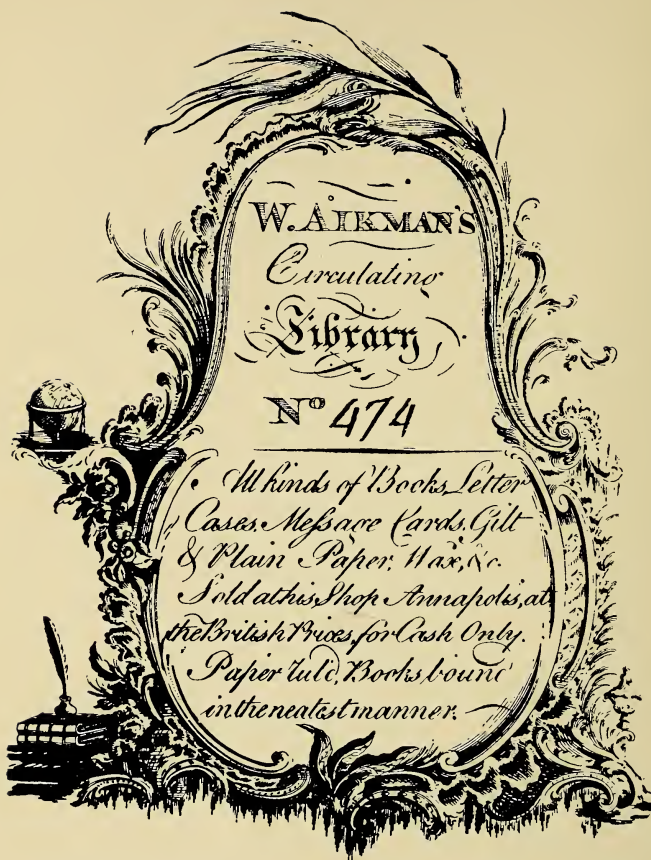 W. AIKMAN'S
Circulating
Library
Nº 474
All kinds of Books, Letter
Cases, Meſsage Cards, Gilt
& Plain Paper, Wax, &c.
Sold at his Shop Annapolis, at
the British Prices, for Cash Only.
Paper Rul'd, Books bound
in the neatest manner.